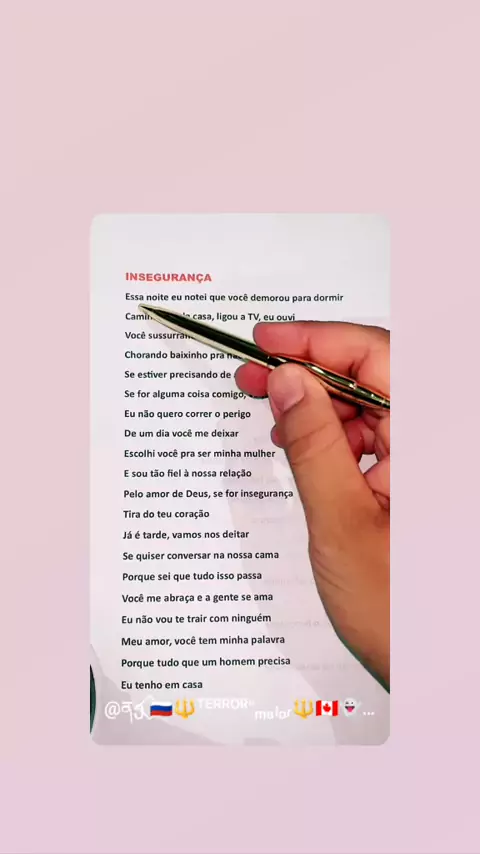 INSEGURANÇA
Essa noite eu notei que você demorou para dormir
casa, ligou a TV, eu ouvi
Você
Chorando baixinho pra
Se estiver precisando de
Se for alguma coisa comigo,
Eu não quero correr o perigo
De um dia você me deixar
Escolhi você pra ser minha mulher
E sou tão fiel à nossa relação
Pelo amor de Deus, se for insegurança
Tira do teu coração
Já é tarde, vamos nos deitar
Se quiser conversar na nossa cama
Porque sei que tudo isso passa
Você me abraça e a gente se ama
Eu não vou te trair com ninguém
Meu amor, você tem minha palavra
Porque tudo que um homem precisa
Eu tenho em casa
TERROR maior